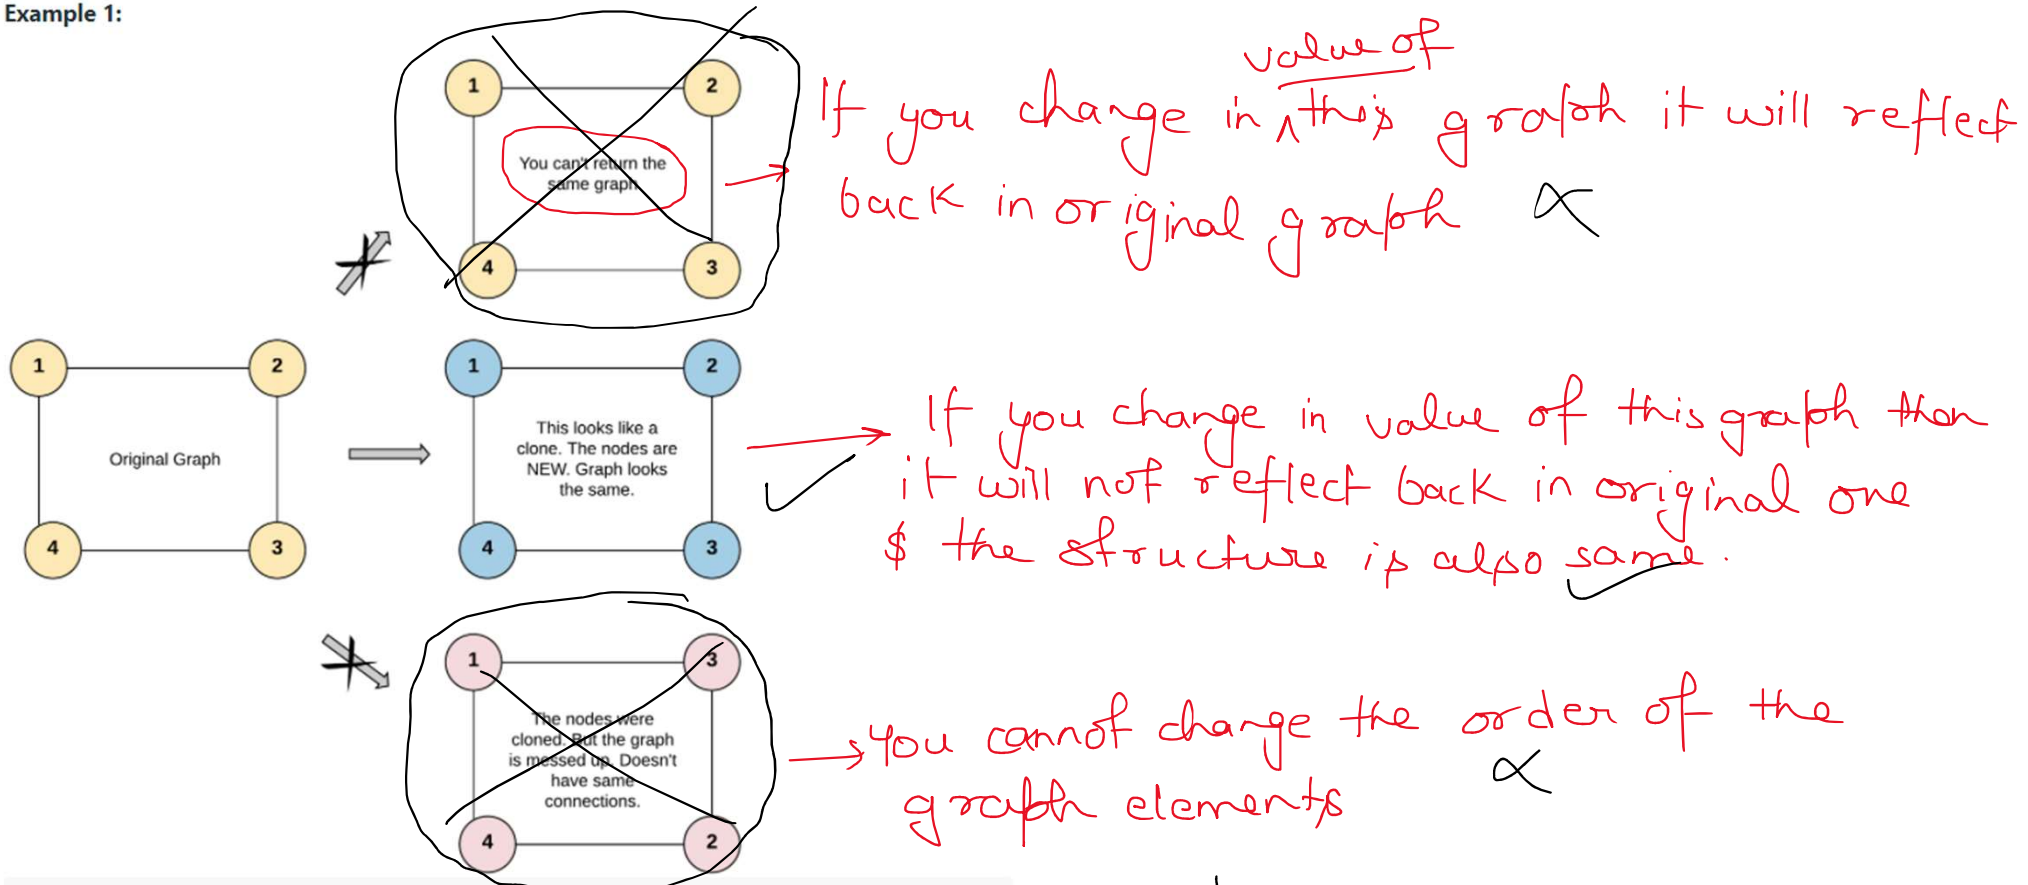 Example 1:
1
2
You can't return the
same graph
4
3
value of
If you change in ^ this graph it will reflect
back in original graph
1
2
Original Graph
4
3
1
2
This looks like a
clone. The nodes are
NEW. Graph looks
the same.
4
3
If you change in value of this graph then
it will not reflect back in original one
$ the structure is also same.
1
3
The nodes were
cloned. But the graph
is messed up. Doesn't
have same
connections.
4
2
You cannot change the order of the
graph elements